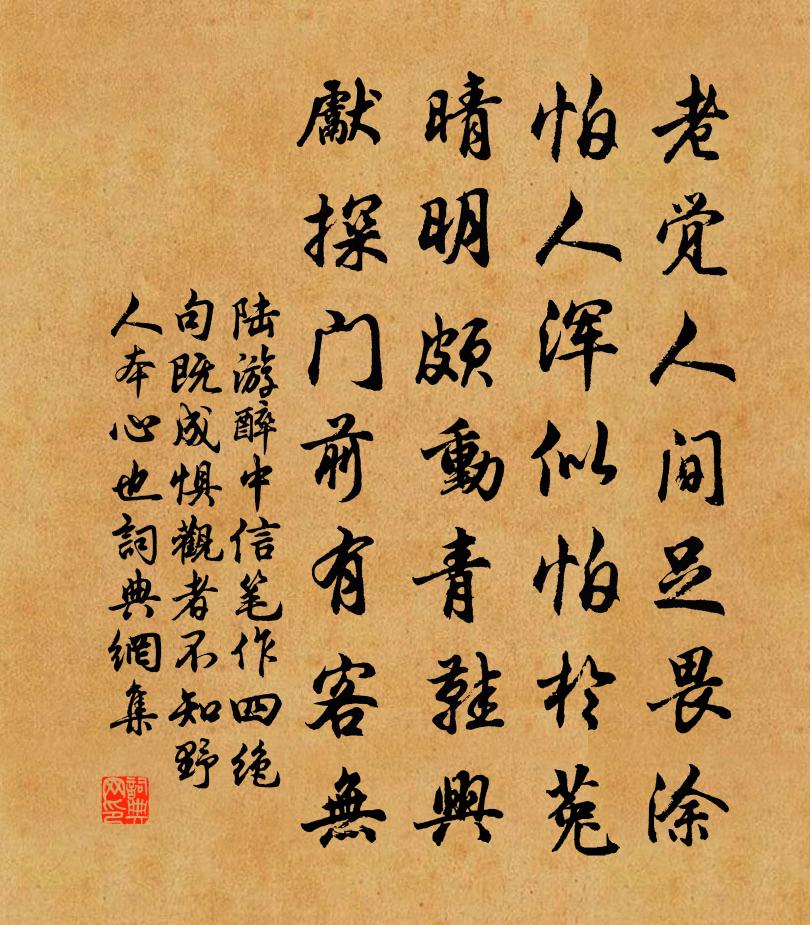 老觉人间足畏涂
怕人浑似怕於菟
晴明頗動青鞋興
獻探门前有客無
陆游醉中信笔作四绝
句既成惧觀者不知野
人本心也詞典網集
詞典网印